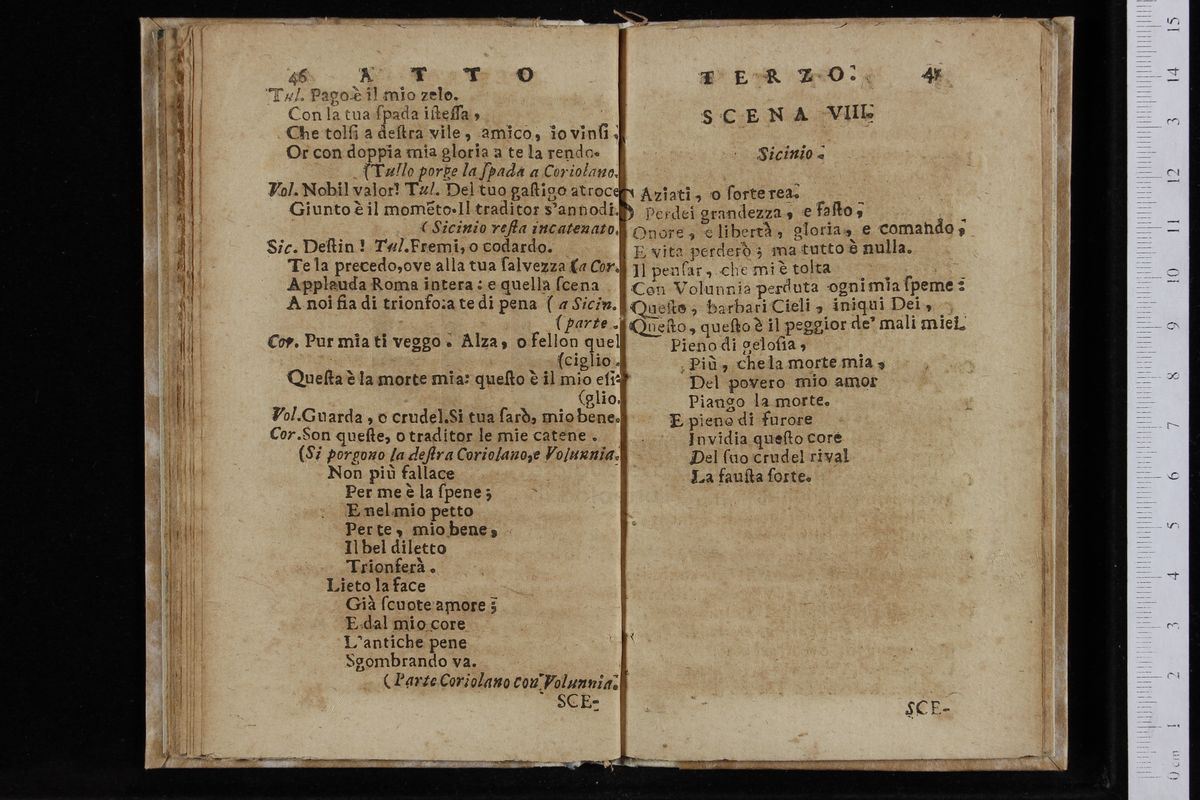 46 ATTO
Tul. Pago è il mio zelo.
Con la tua ſpada iſteſſa,
Che tolſi a deſtra vile, amico, io vinſi,
Or con doppia mia gloria a te la rendo.
(Tullo porge la ſpada a Coriolano.
Vol. Nobil valor! Tul. Del tuo gaſtigo atroce
Giunto è il momẽto. Il traditor s'annodi.
(Sicinio reſta incatenato.
Sic. Deſtin! Tul. Fremi, o codardo.
Te la precedo, ove alla tua ſalvezza (a Cor.
Applauda Roma intera: e quella ſcena
A noi fia di trionfo: a te di pena (a Sicin.
(parte.
Cor. Pur mia ti veggo. Alza, o fellon quel
(ciglio.
Queſta è la morte mia: queſto è il mio eſi-
(glio.
Vol. Guarda, o crudel. Si tua ſarò, mio bene.
Cor. Son queſte, o traditor le mie catene.
(Si porgono la deſtra Coriolano, e Volunnia.
Non più fallace
Per me è la ſpene;
E nel mio petto
Per te, mio bene,
Il bel diletto
Trionferà.
Lieto la face
Già ſcuote amore;
E dal mio core
L'antiche pene
Sgombrando va.
(Parte Coriolano con Volunnia.
SCE-
TERZO.
SCENA VIII.
Sicinio.
SAziati, o ſorte rea.
Perdei grandezza, e faſto;
Onore, e libertà, gloria, e comando;
E vita perderò; ma tutto è nulla.
Il penſar, che mi è tolta
Con Volunnia perduta ogni mia ſpeme:
Queſto, barbari Cieli, iniqui Dei,
Queſto, queſto è il peggior de' mali miei.
Pieno di geloſia,
Più, che la morte mia,
Del povero mio amor
Piango la morte.
E pieno di furore
Invidia queſto core
Del ſuo crudel rival
La fauſta ſorte.
SCE-